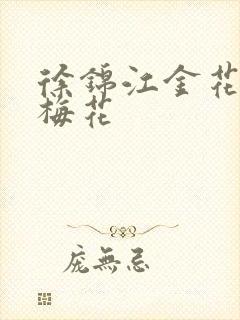 徐錦江金花
梅花
庞無忌